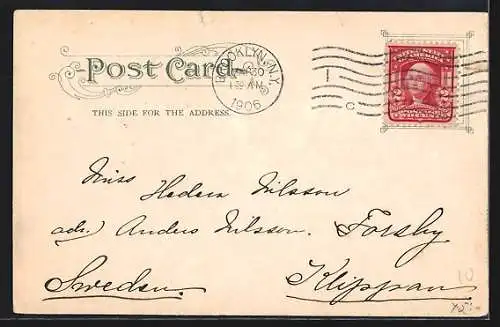 POST CARD.
THIS SIDE FOR THE ADDRESS.
BROOKLYN, N.Y.
30
1906
C
2 2
Miss Hedera Nilsson
adr. Anders Nilsson. Forsby
Sweden. Klippan